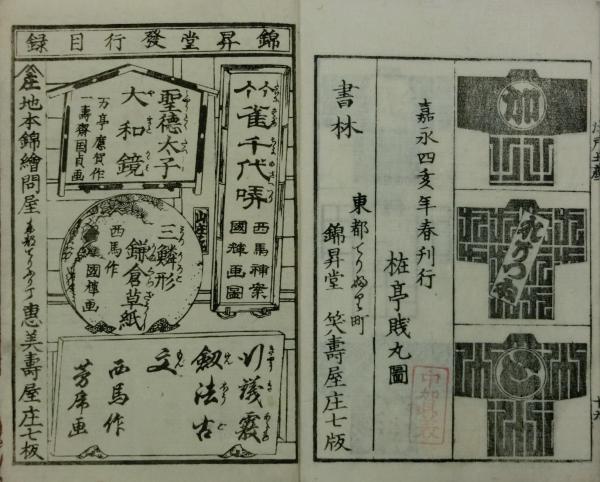 加
嘉永四亥年春刊行
桩亭賎丸圖
書林
東都てりふり町
錦昇堂 笑壽屋庄七版
錦昇堂發行目録
竹雀千代哢
西馬神案
國輝画圖
聖德太子
大和鏡
万亭應賀作
一壽齋国貞画
三鱗形
鎌倉草紙
西馬作
國輝画
釼法古
文
西馬作
芳虎画
地本錦繪問屋
東都てりふり丁
惠美壽屋庄七板